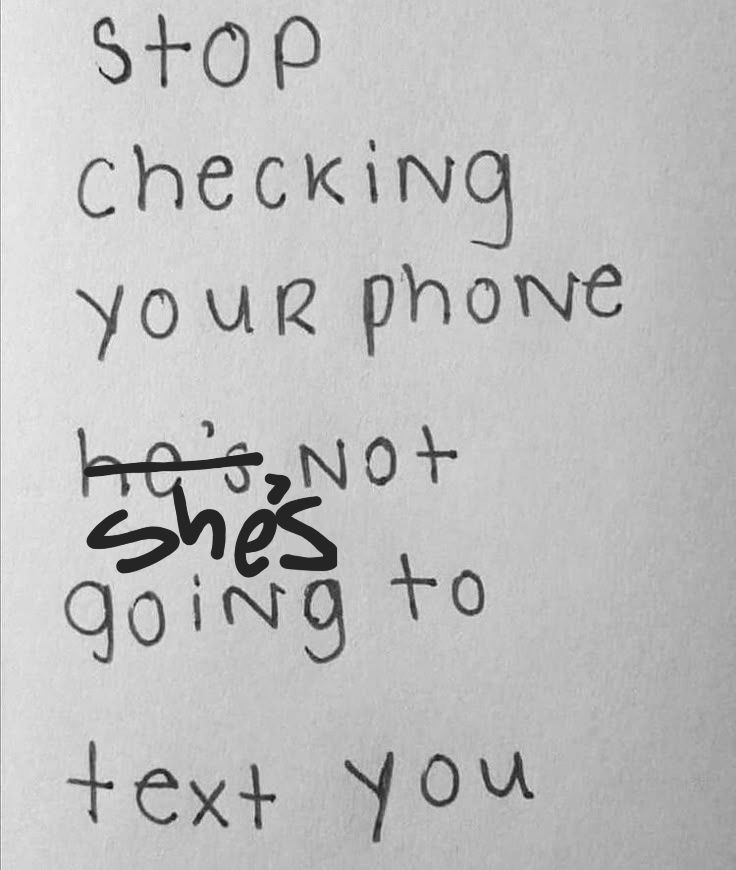 stop
checking
your phone
he's not
she's
going to
text you